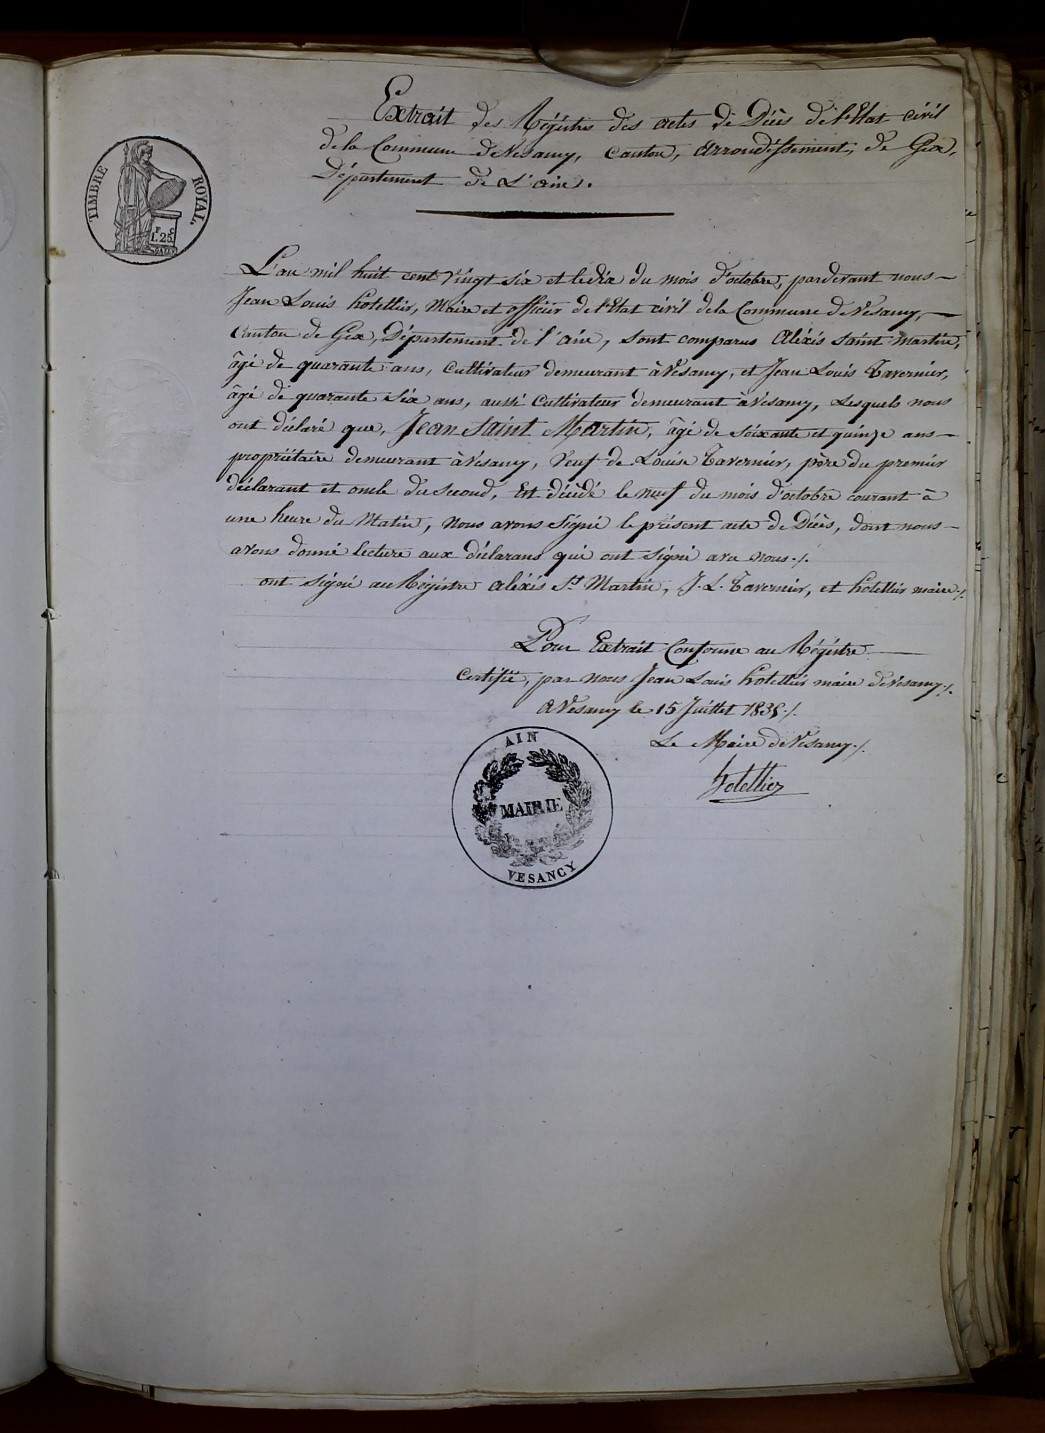 Extrait des Régistres des actes de Décès de l'Etat civil
de la Commune de Vesancy, Canton, arrondissement, de Gex,
Département de L'ain.
TIMBRE ROYAL.
F. C
1. 25
L'an mil huit cent vingt six et le dix du mois d'octobre, pardevant nous
Jean Louis hotellier, Maire et officier de l'Etat civil de la Commune de Vesancy,
Canton de Gex, Département de l'ain, sont comparus Aléxis saint martin,
âgé de quarante ans, Cultivateur demeurant à Vesancy, et Jean Louis Tavernier,
âgé de quarante Six ans, aussi Cultivateur demeurant à Vesancy, Lesquels nous
ont déclaré que, Jean Saint Martin, âgé de soixante et quinze ans
propriétaire demeurant à Vesancy, veuf de Louise Tavernier, père du premier
déclarant et oncle du second, Est décédé le neuf du mois d'octobre courant à
une heure du Matin, Nous avons Signé le présent acte de Décès, dont nous
avons donné lecture aux déclarans qui ont signé avec nous./.
ont signé au Régistre aléxis St Martin, J. L. Tavernier, et hotellier maire./.
Pour Extrait Conforme au Régistre
Certifié, par nous Jean Louis hotellier maire de Vesancy./.
A Vesancy le 15 Juillet 1835./.
Le Maire de Vesancy./.
hotellier
AIN
MAIRIE
VESANCY